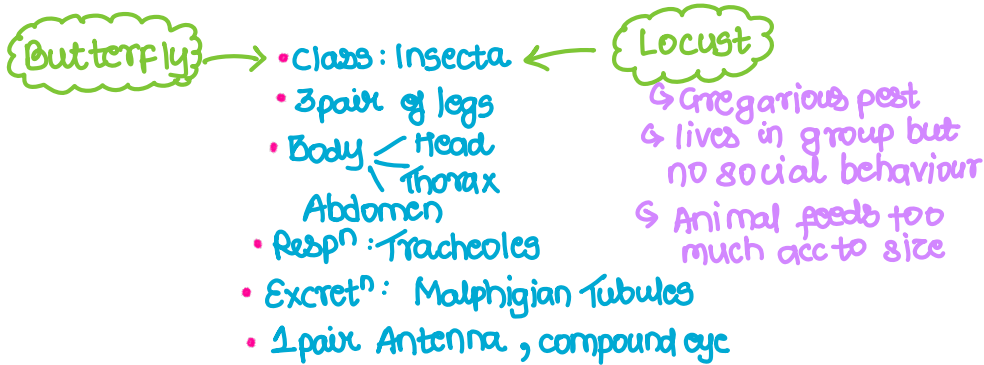 Butterfly
Class: Insecta
3pair of legs
Body
Head
Thorax
Abdomen
Respⁿ: Tracheoles
Excretⁿ: Malphigian Tubules
1pair Antenna, compound eye
Locust
Gregarious pest
lives in group but
no social behaviour
Animal feeds too
much acc to size